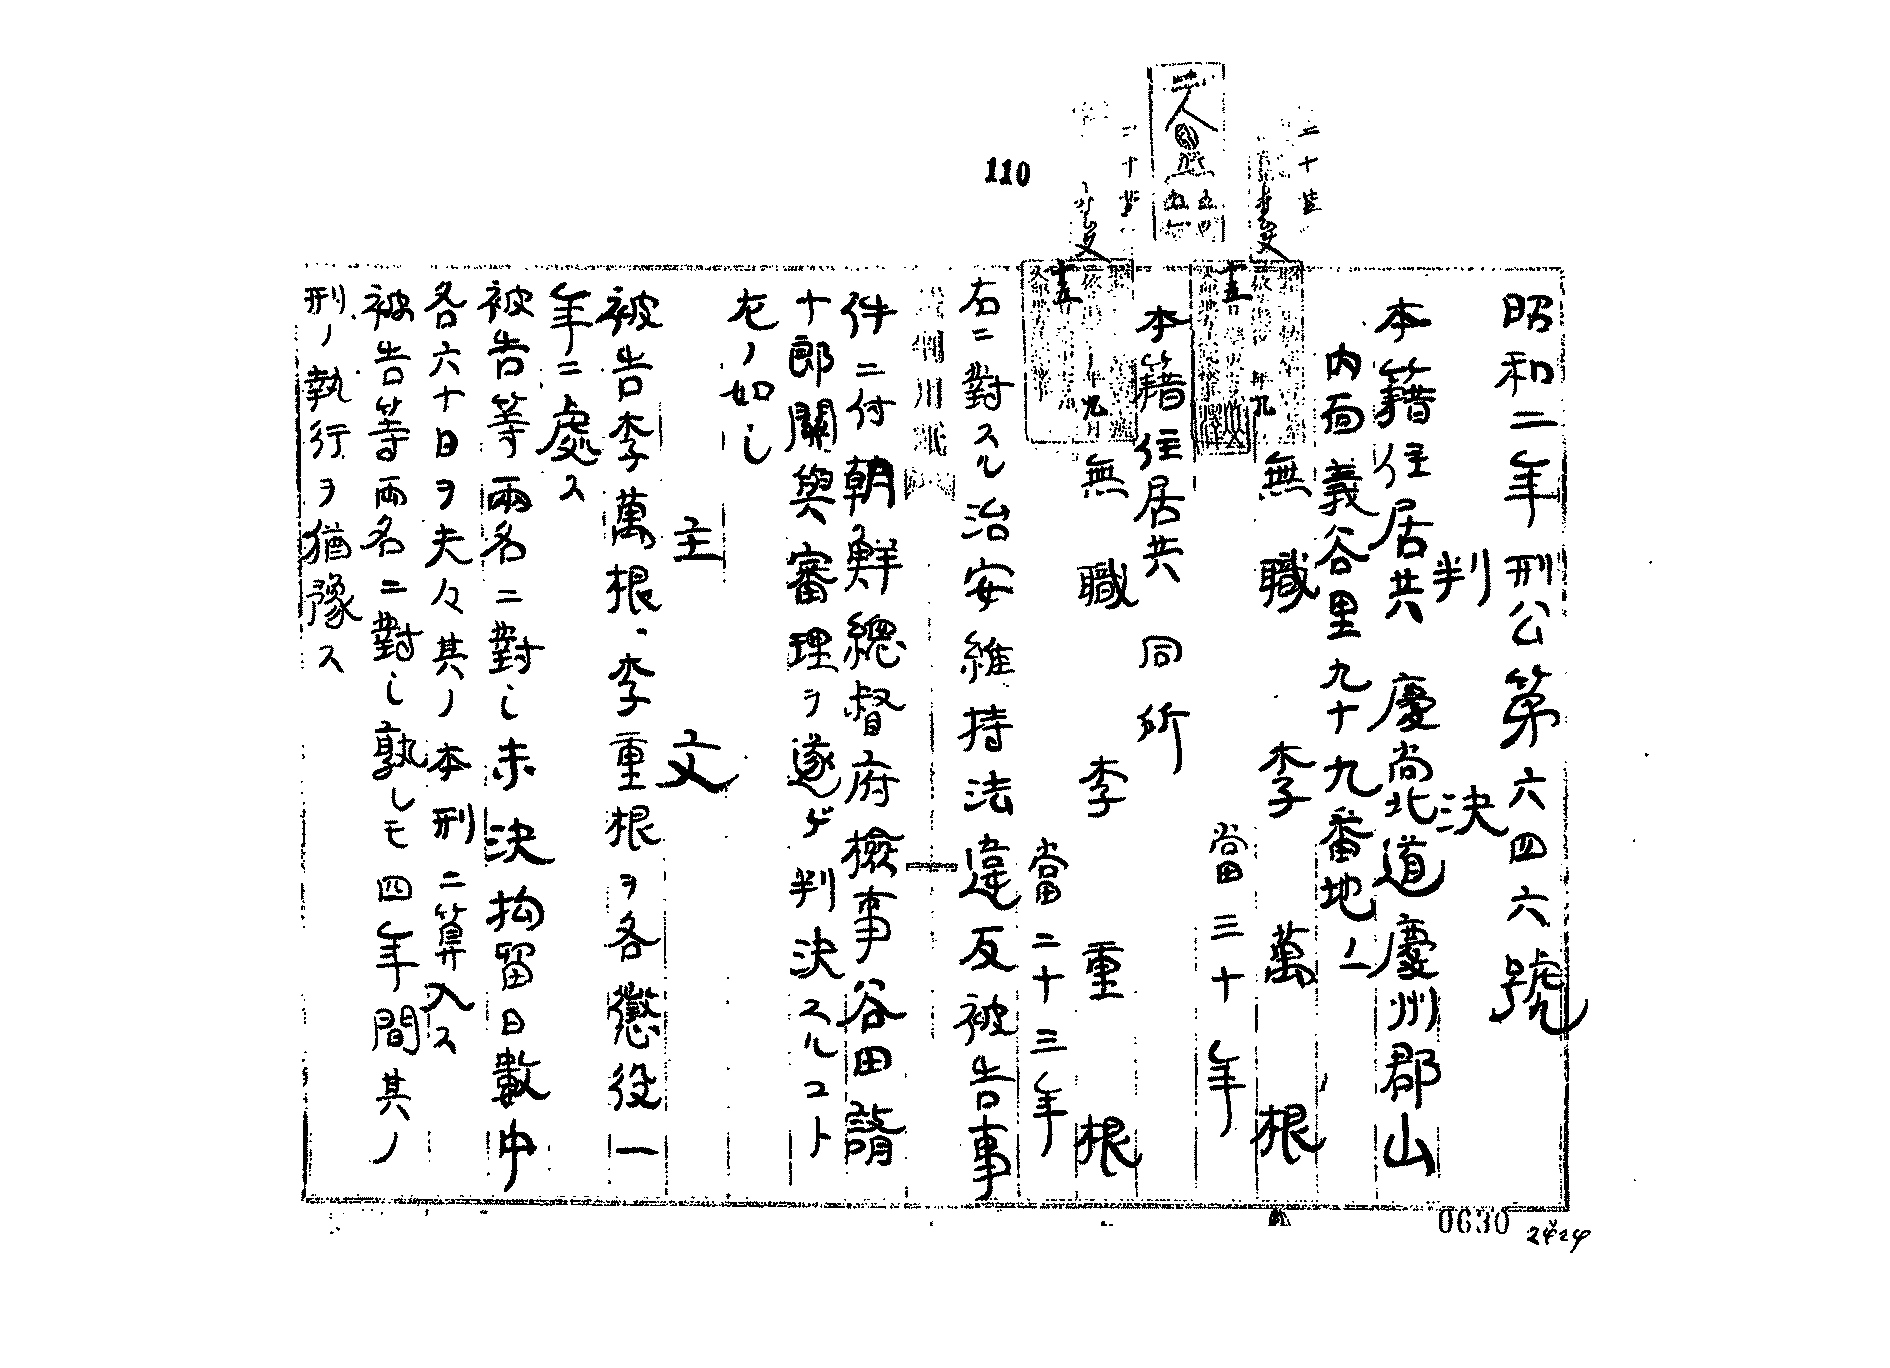 110
昭和二年刑公第六四六號
判決
本籍住居共 慶尚北道慶州郡山
內面義谷里九十九番地ノ二
無職 李萬根
當三十年
本籍住居共 同所
無職 李重根
當二十三年
右ニ對スル治安維持法違反被告事
件ニ付朝鮮總督府檢事谷田
十郎關與審理ヲ遂ゲ判決スルコト
左ノ如シ
主文
被告李萬根、李重根ヲ各懲役一
年ニ處ス
被告等兩名ニ對シ未決拘留日數中
各六十日ヲ夫々其ノ本刑ニ算入ス
被告等兩名ニ對シ孰レモ四年間其ノ
刑ノ執行ヲ猶豫ス
0630
2424